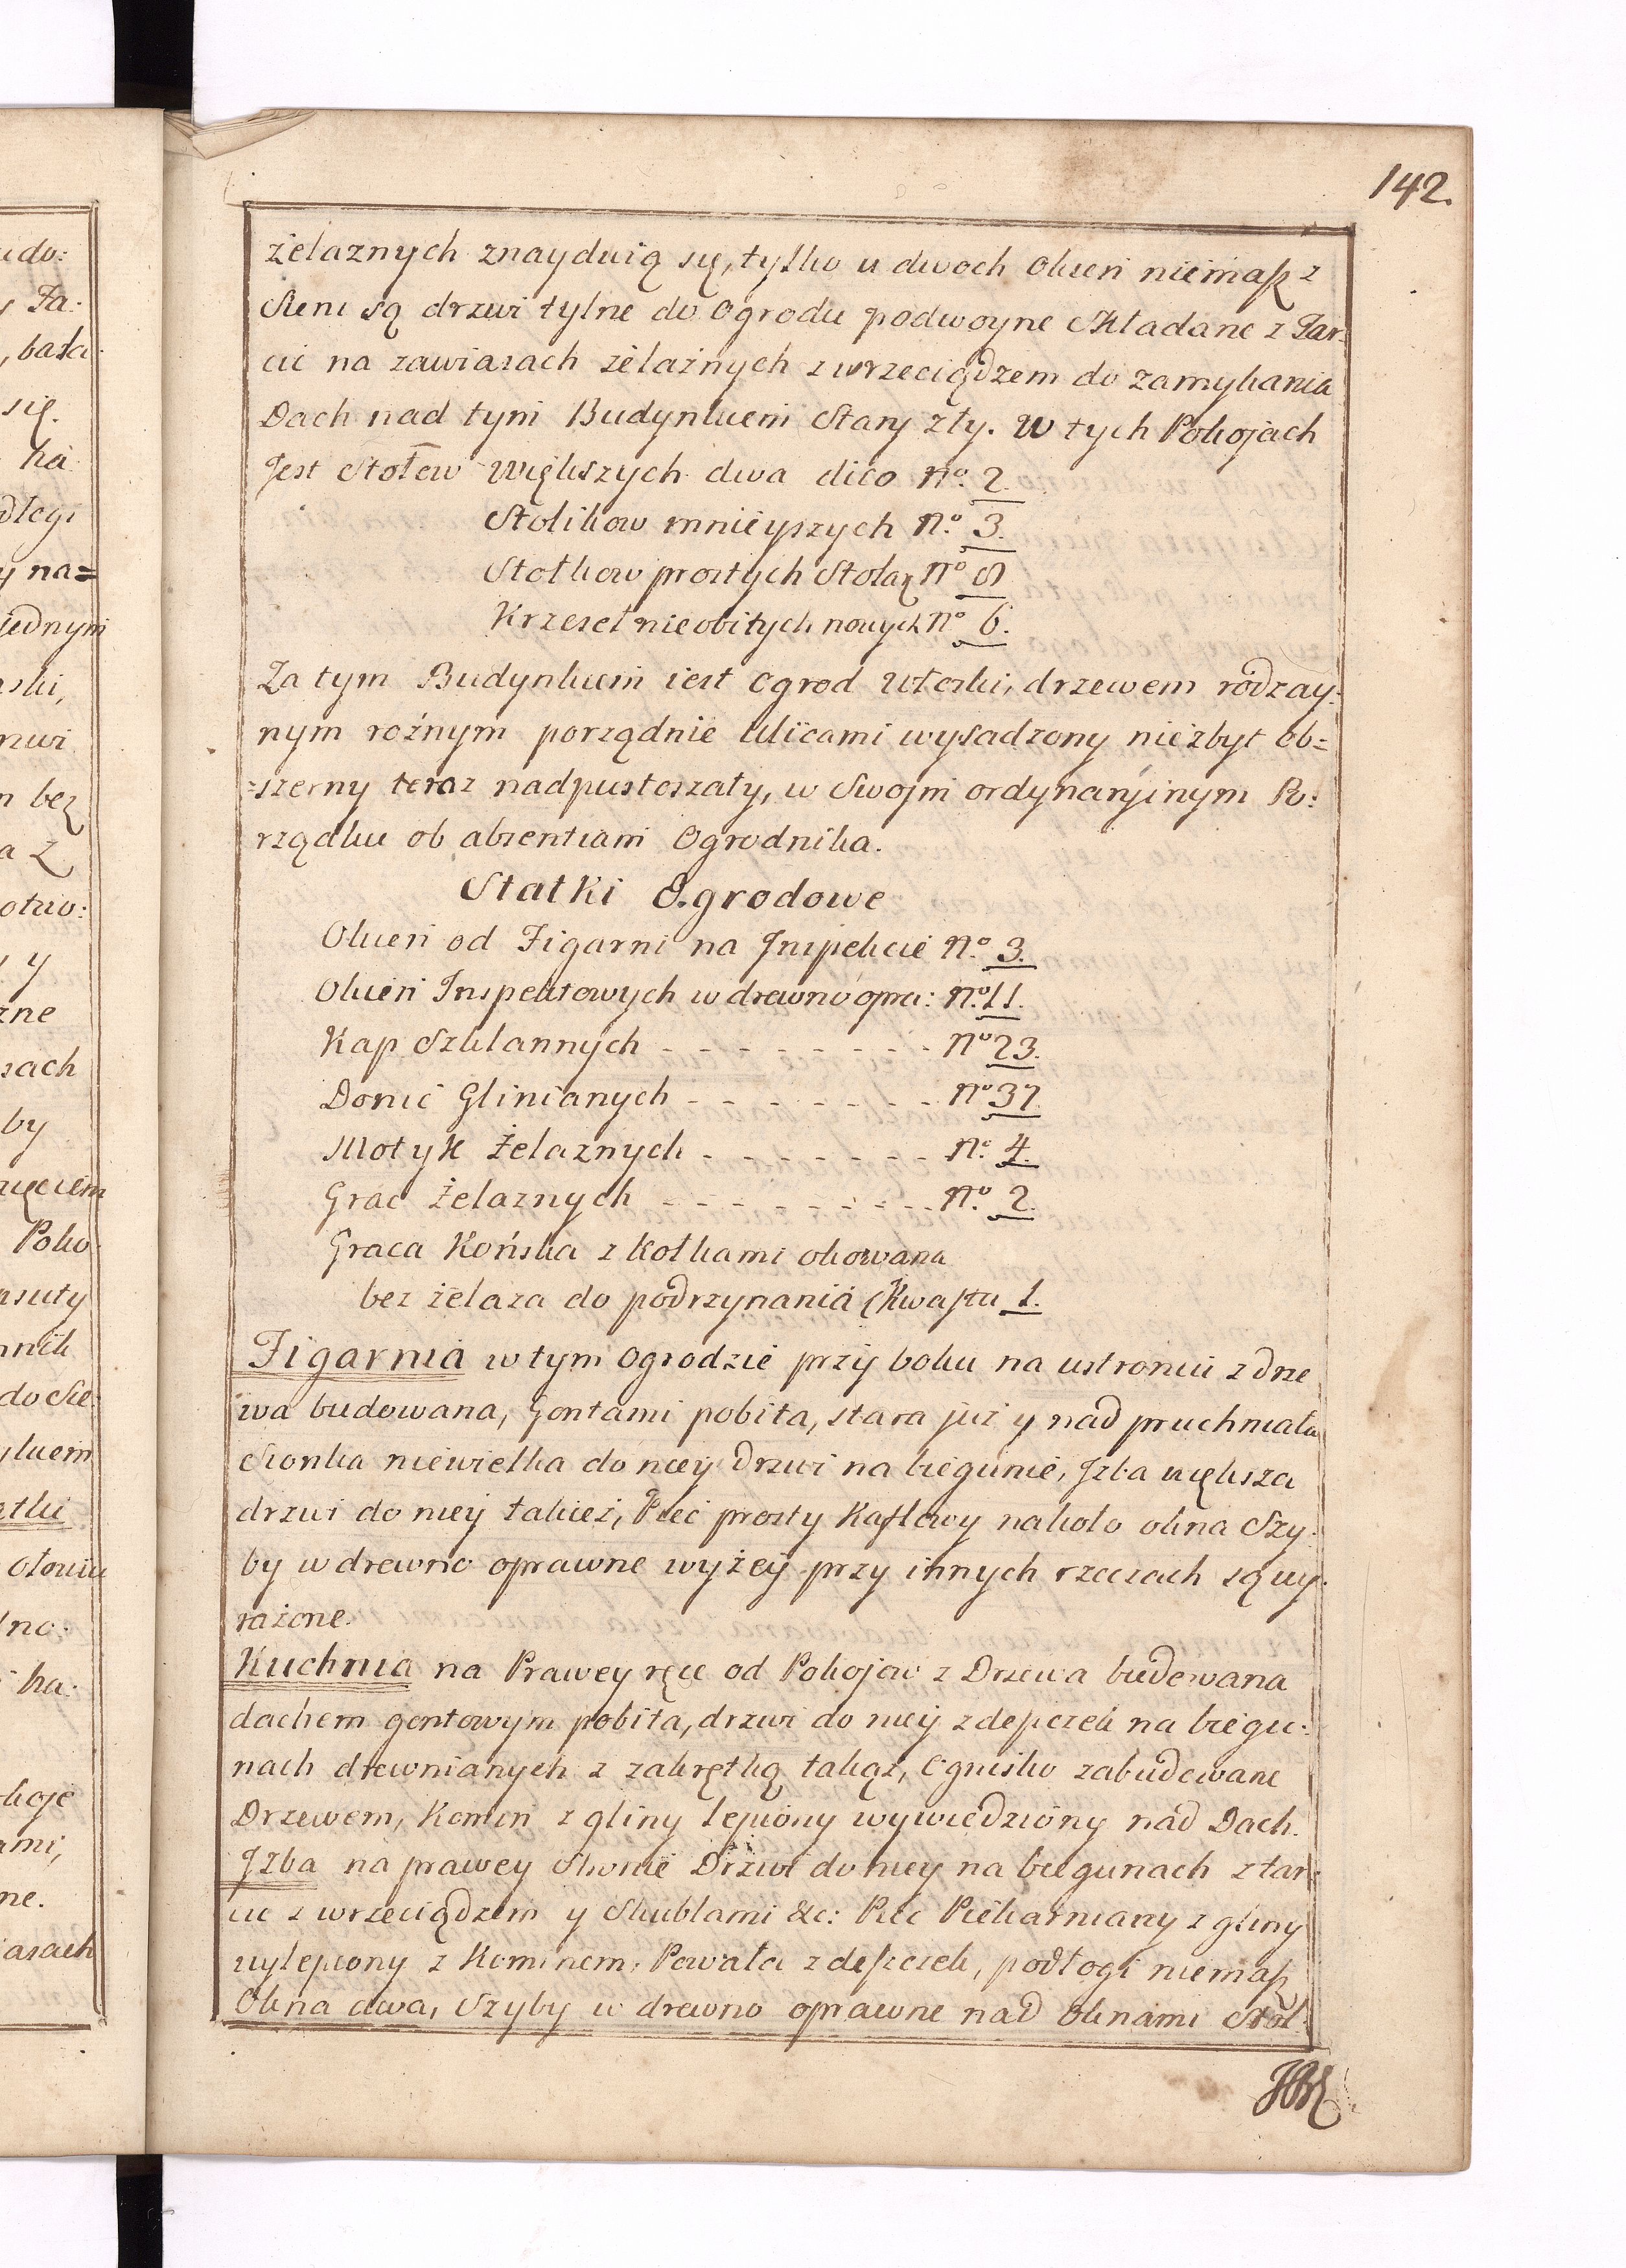 142.
żelaznych znayduią się, tylko u dwoch Okień niemasz z
Sieni są drzwi tylne do Ogrodu podwoyne składane z Tar:
cic na zawiasach żelaznych z wrzeciądzem do zamykania
Dach nad tym Budynkiem Stary zły. W tych Pokojach
Jest Stołow Większych dwa dico No. 2.
Stolikow mnieyszych No. 3.
Stołkow prostych Stolar No
Krzeseł nieobitych nowych No 6.
Za tym Budynkiem iest Ogrod Włoski, drzewem rodzay:
nym rożnym porządnie Ulicami wysadzony niezbyt ob=
=szerny teraz nadpustoszały, w Swojm ordynaryinym Po:
rządku ob absentiam Ogrodnika.
Statki Ogrodowe
Okień od Figarni na Jnspekcie No. 3.
Okien Jnspektowych w drewno opra: No. 11.
Kap Szklannych - - - - - - - - No 23.
Donic Glinianych - - - - - - - No 37.
Motyk Żelaznych - - - - - - - No. 4.
Grac Żelaznych - - - - - - - - No. 2.
Graca Końska z Kołkami okowana
bez żelaza do podrzynania Chwastu 1.
Figarnia w tym Ogrodzie przy boku na ustroniu z drze
wa budowana, Gontami pobita, stara już y nad pruchniała
Sionka niewielka do niey Drzwi na biegunie, Jzba większa
drzwi do niey takież, Piec prosty Kaflowy nakoło okna Szy:
by w drewno oprawne wyżey przy innych rzeczach są wy:
rażone.
Kuchnia na Prawey ręce od Pokojow z Drzewa budowana
dachem gontowym pobita, drzwi do niey z deszczek na biegu:
nach drewnianych z zakrętką takąż, Ognisko zabudowane
Drzewem, Komin z gliny lepiony wywiedziony nad Dach.
Jzba na prawey Stronie Drzwi do niey na biegunach z tar:
cic z wrzeciądzem y Skublami &c: Piec Piekarniany z gliny
wylepiony z Kominem, Powała z deszczek, podłogi niemasz
Okna dwa, Szyby w drewno oprawne nad Oknami Stoł: